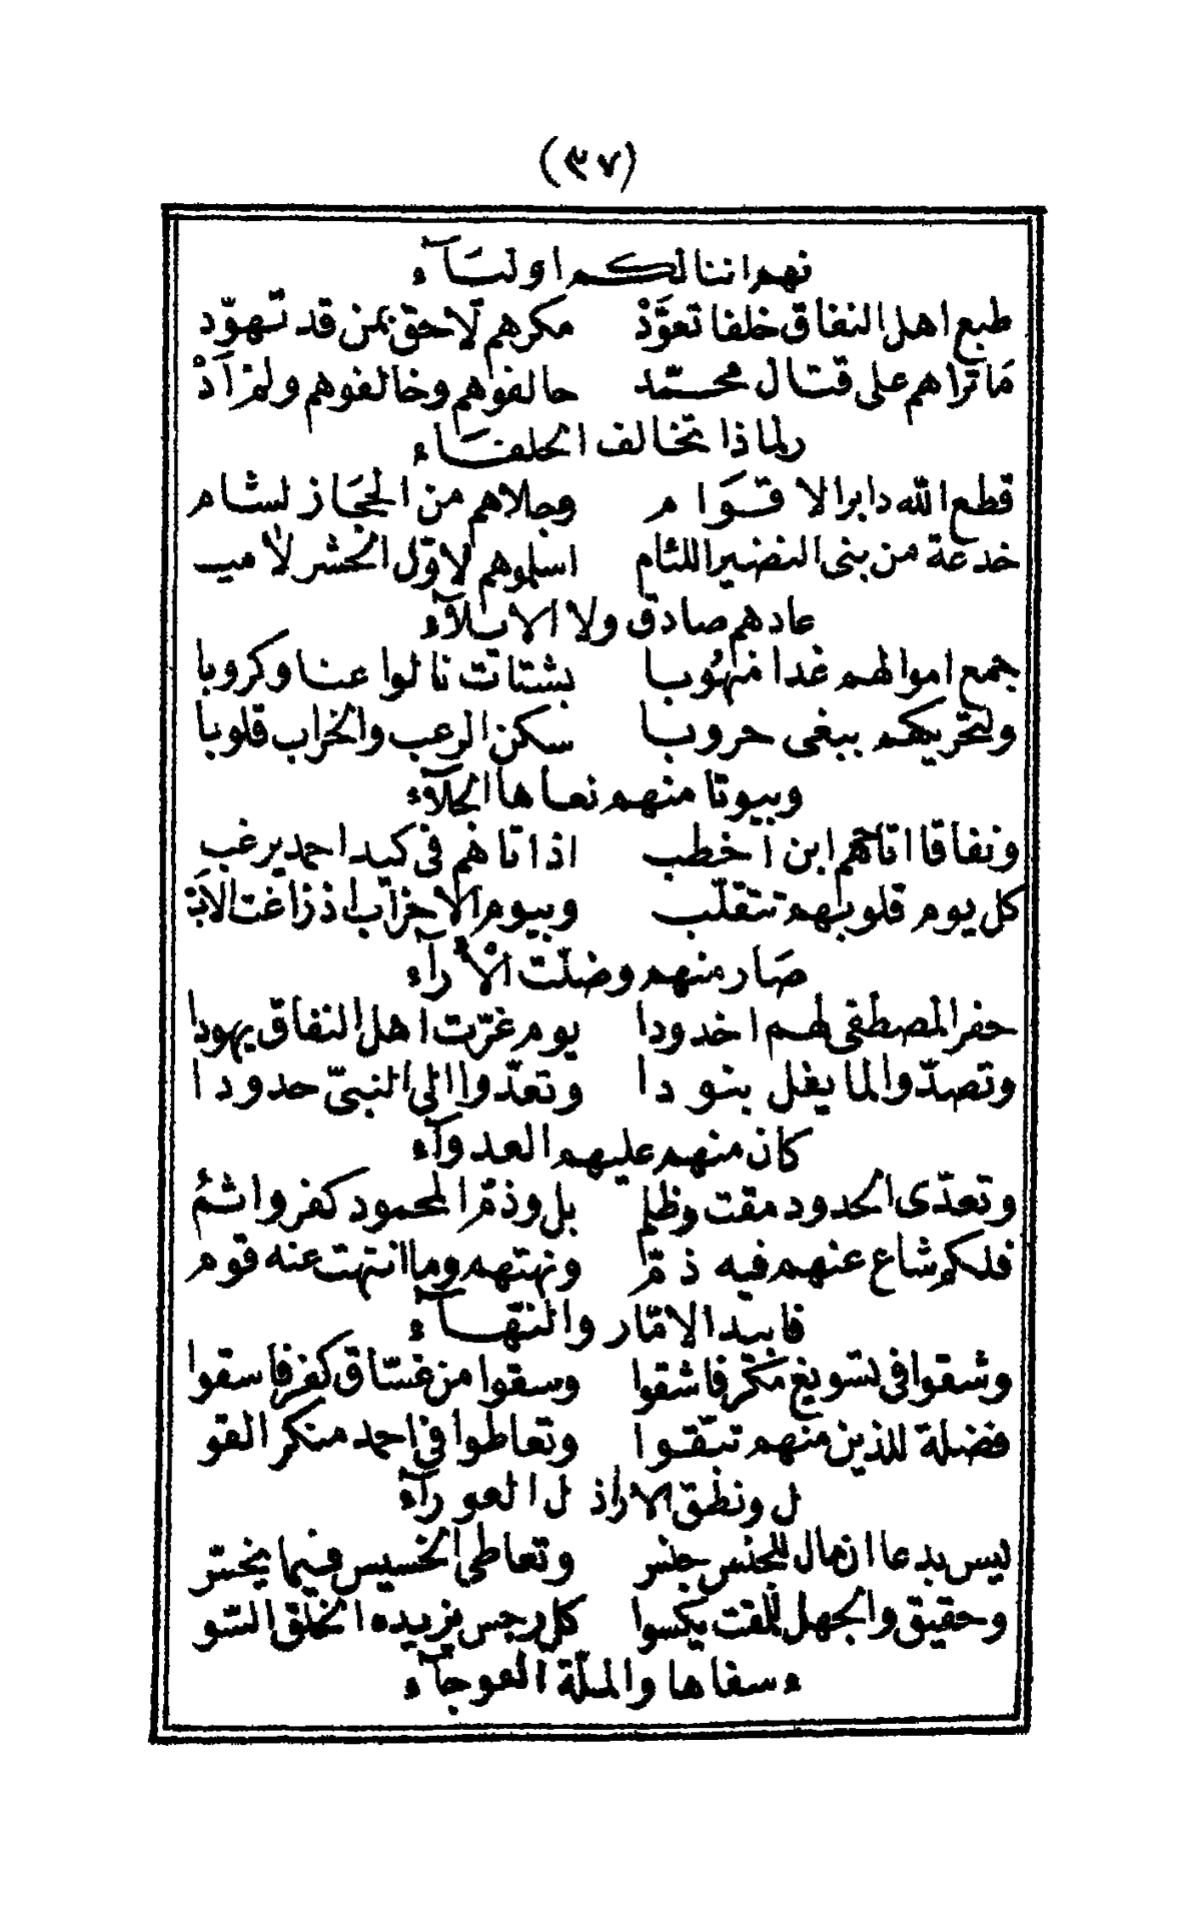 (٣٧)
نهم اننا لكم اوليآء
طبع اهل النفاق خلفا تعوَّذْ مكرهم لاحق بمن قد تهوّد
مَا تراهم على قتال محمّد حالفوهم وخالفوهم ولم اَدْ
ر لماذا تخالف الحلفآء
قطع الله دابر الاقوَام وجلاهم من الحجاز لشام
خدعة من بنى النضير اللئام اسلموهم لاوّل الحشر لا ميـ
عادهم صادق ولا الايلآء
جمع اموالهم غدا منهُوبا بشتات نالوا عنا وكروبا
ولتحريكهم ببغى حروبا سكن الرعب والخراب قلوبا
وبيوتا منهم نعاها الجلآء
ونفاقا اتاهم ابن اخطب اذ اتاهم فى كيد احمد يرغب
كل يوم قلوبهم تتقلّب وبيوم الاحزاب اذ زاغت الابَـ
صَار منهم وضلّت الْأرآء
حفر المصطفى لهم اخدودا يوم غرّت اهل النفاق يهودا
وتصدّوا لما يفل بنودا وتعدّوا الى النبىّ حدودا
كان منهم عليهم العدوآء
وتعدّى الحدود مقت وظلم بل وذمّ المحمود كفر واثمُ
فلكم شاع عنهم فيه ذمّ ونهتهم وما انتهت عنه قوم
فابيد الامّار والنهّآء
وشقوا فى تسويغ مكر فاشقوا وسقوا من غسّاق كفر فاسقوا
فضلة للذين منهم تبّقوا وتعاطوا فى احمد منكر القو
ل ونطق الاراذل العورآء
ليس بدعا ان مال للجنس جنس وتعاطى الخسيس فيما يخسّ
وحقيق والجهل للمقت يكسوا كل رجس يزيده الخلق السّو
ء سفاها والملّة العوجآء